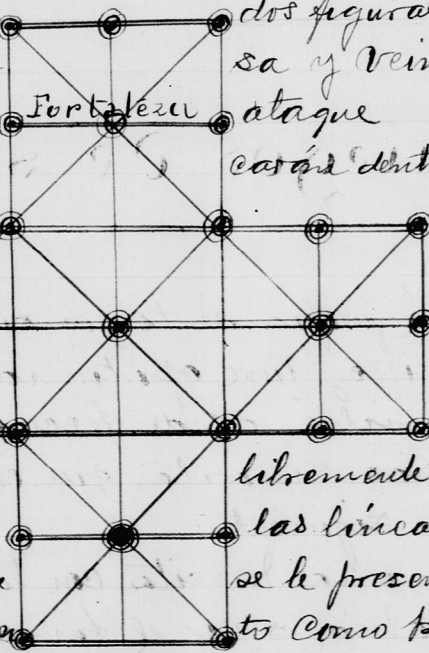 dos figura
sa y vein
Fortaleza ataque
dent
libremente
las línea
se le presen
to como p